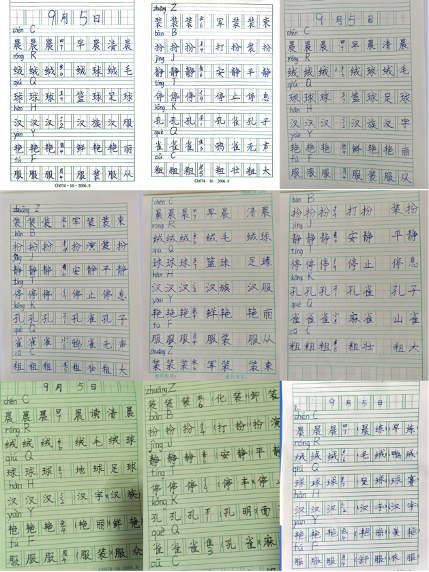 9月5日
chén C
晨晨晨 早晨清晨
róng R
绒绒绒 绒球绒毛
qiú Q
球球球 篮球足球
hàn H
汉汉汉 汉族汉服
yàn Y
艳艳艳 鲜艳艳丽
fú F
服服服 服装服从
zhuāng Z
装装装 军装装束
bàn B
扮扮扮 打扮装扮
jìng J
静静静 安静平静
tíng T
停停停 停止停息
kǒng K
孔孔孔 孔雀孔子
què Q
雀雀雀 鸦雀无声
cū C
粗粗粗 粗壮粗大
9月5日
chén C
晨晨晨 早晨清晨
róng R
绒绒绒 绒球绒毛
qiú Q
球球球 篮球足球
hàn H
汉汉汉 汉族汉字
yàn Y
艳艳艳 鲜艳艳丽
fú F
服服服 服装服从
zhuāng Z
装装装 军装装束
bàn B
扮扮扮 扮演装扮
jìng J
静静静 安静平静
tíng T
停停停 停止停息
kǒng K
孔孔孔 孔雀孔子
què Q
雀雀雀 鸦雀无声
cū C
粗粗粗 粗壮粗大
chén C
晨晨晨 早晨 清晨
róng R
绒绒绒 绒毛 绒球
qiú Q
球球球 篮球 足球
hàn H
汉汉汉 汉族 汉服
yàn Y
艳艳艳 鲜艳 艳丽
fú F
服服服 服装 服从
zhuāng Z
装装装 军装 装束
bàn B
扮扮扮 打扮 装扮
jìng J
静静静 安静 平静
tíng T
停停停 停止 停息
kǒng K
孔孔孔 孔雀 孔子
què Q
雀雀雀 麻雀 山雀
cū C
粗粗粗 粗壮 粗大
9月5日
chén C
晨晨晨 晨读清晨
róng R
绒绒绒 绒毛绒球
qiú Q
球球球 地球足球
hàn H
汉汉汉 汉字汉族
yàn Y
艳艳艳 艳丽鲜艳
fú F
服服服 服装服众
zhuāng Z
装装装 化装卸装
bàn B
扮扮扮 打扮扮演
jìng J
静静静 安静平静
tíng T
停停停 停车停止
kǒng K
孔孔孔 孔明面
què Q
雀雀雀 孔雀麻
cū C
9月5日
chén C
晨晨晨 晨练早晨
róng R
绒绒绒 毛绒鸭绒
qiú Q
球球球 足球球赛
hàn H
汉汉汉 汉字汉
yàn Y
艳艳艳
fú F
服服服 舒服衣服